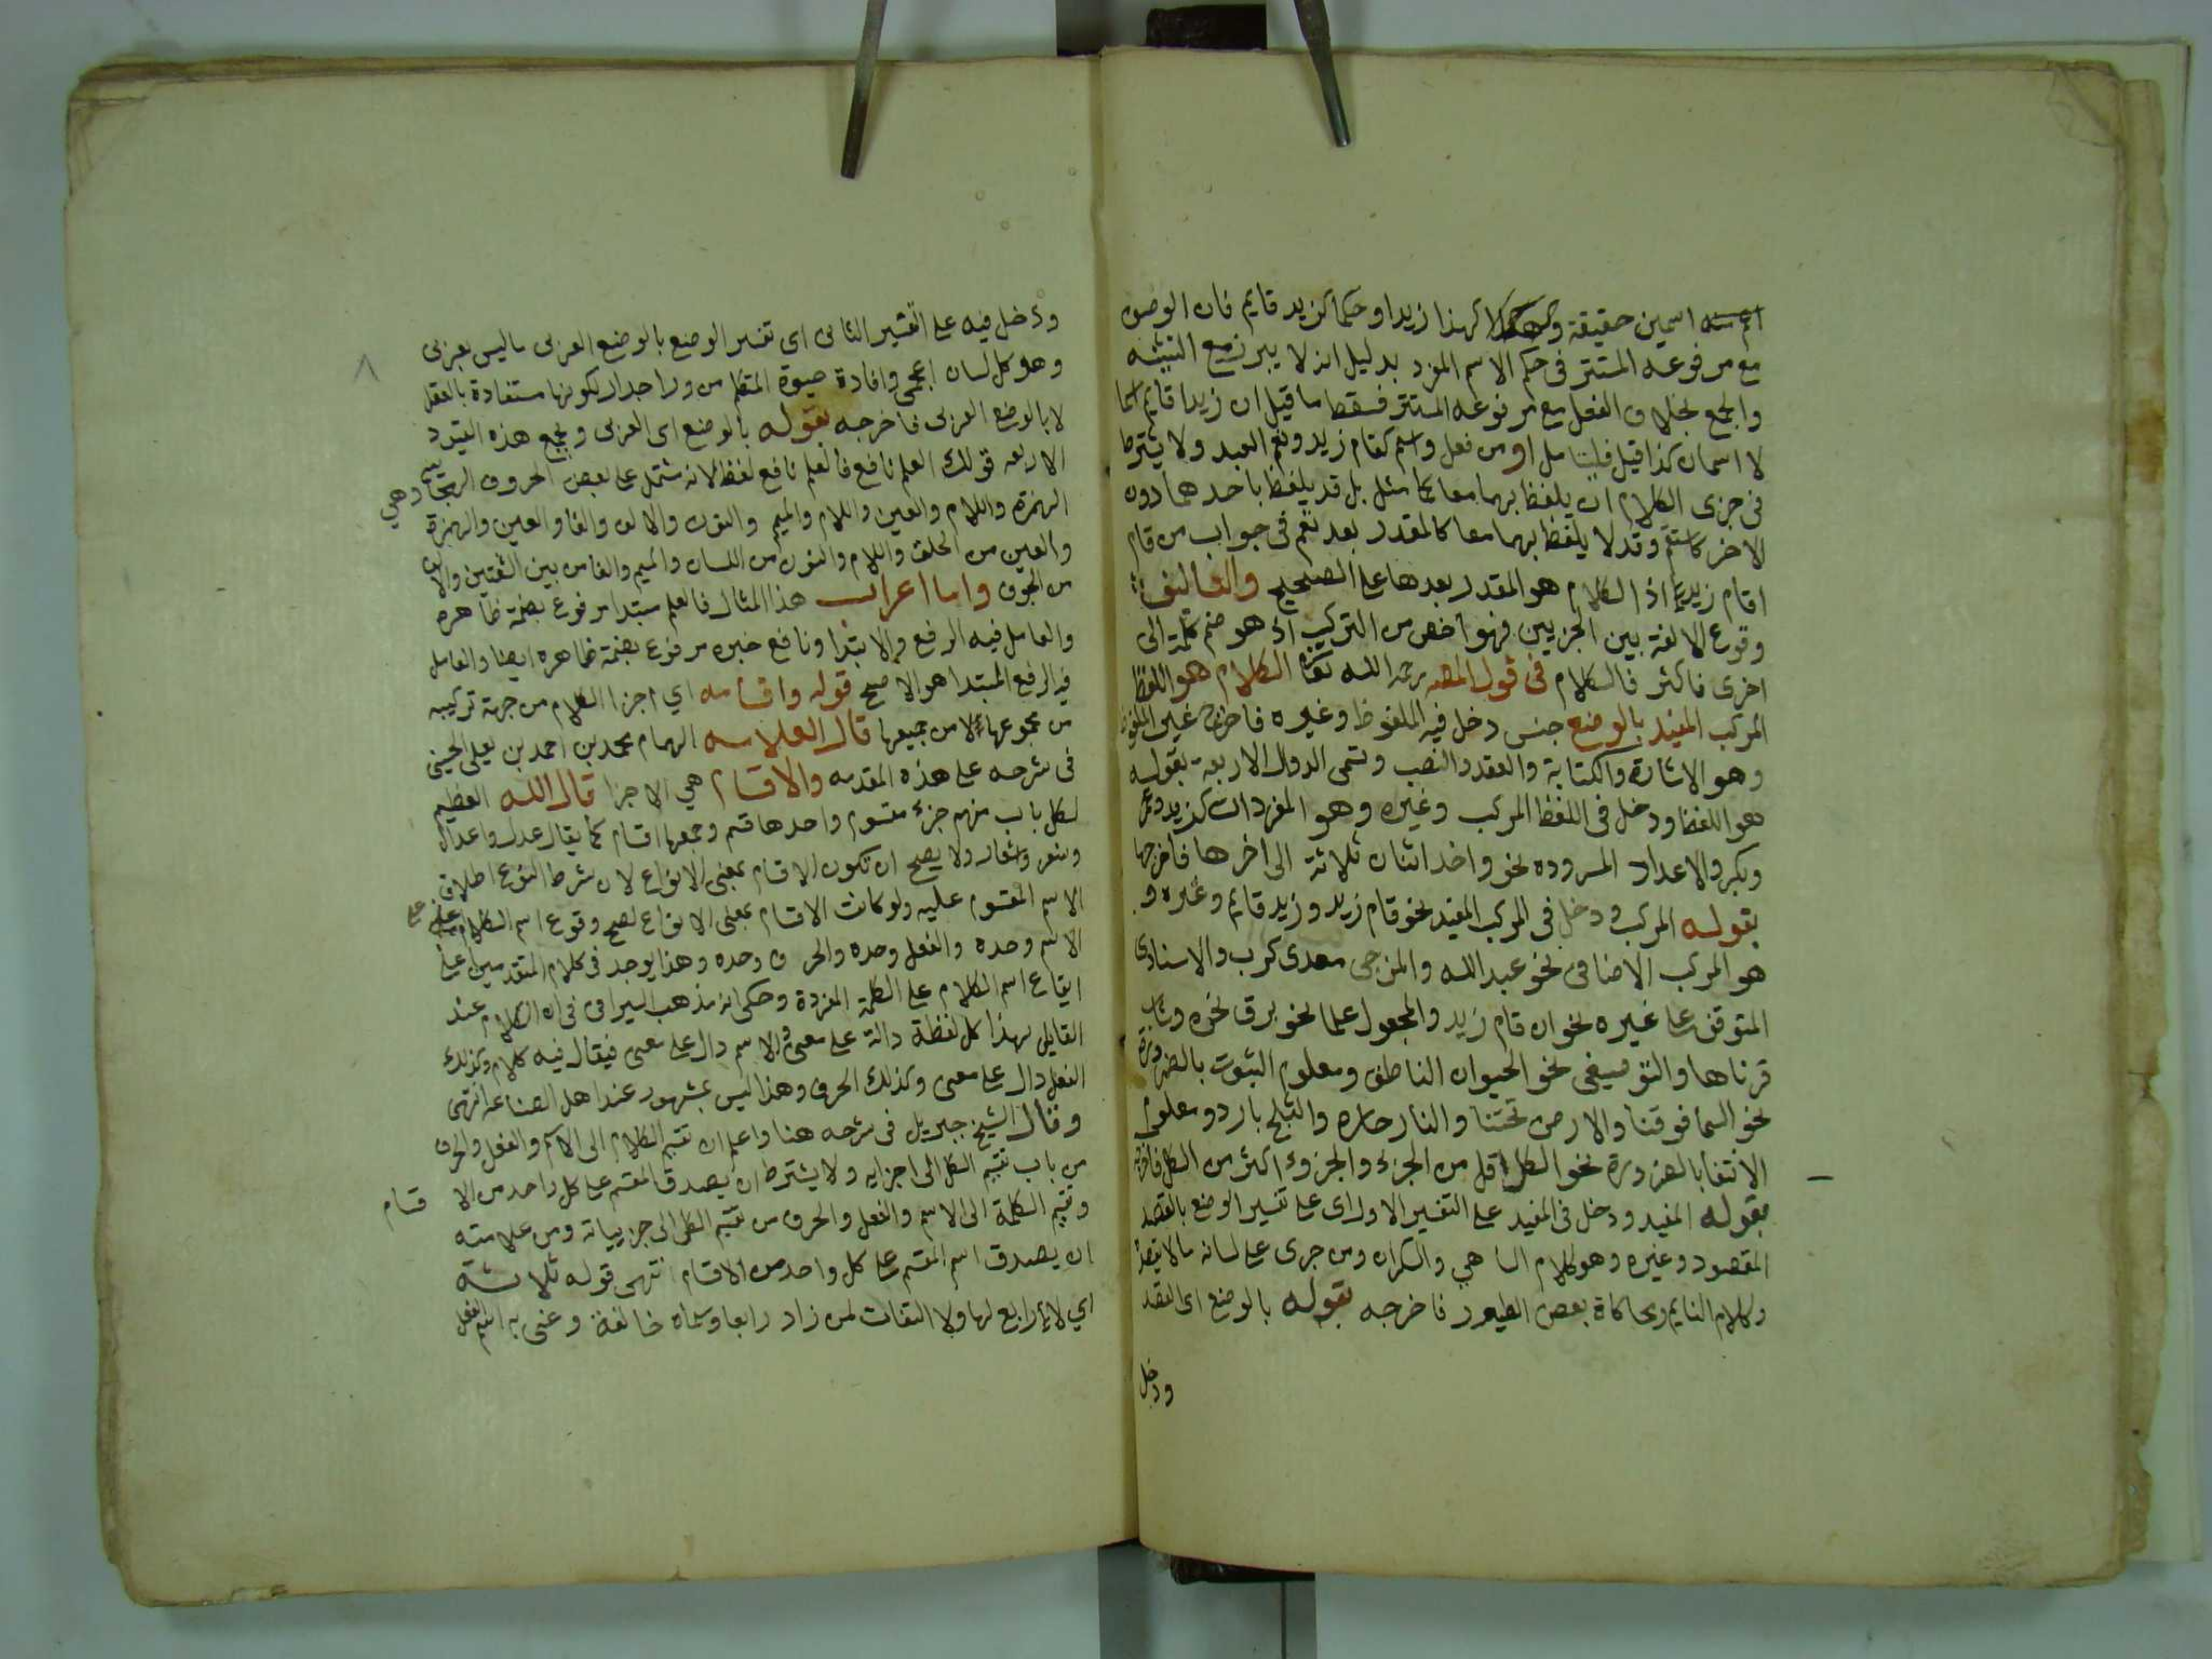 اسمين حقيقة كهذا زيد او حكما كزيد قايم فان الوصف
مع مرفوعه المستتر في حكم الاسم المفرد بدليل انه لا يبرز مع التثنيه
والجمع بخلاف الفعل مع مرفوعه المستتر فسقط ما قيل ان زيدا قايم اسما
لا اسمان كذا قيل فليتامل او من فعل واسم كقام زيد ونعم العبد ولا يشترط
في جزى الكلام ان يلفظ بهما معا كما مثل بل قد يلفظ باحدهما دون
الاخر كاستقم وقد لا يلفظ بهما معا كالمقدر بعد نعم في جواب من قام
اقام زيد اذ الكلام هو المقدر بعدها على الصحيح والتاليف
وقوع الالفة بين الجزيين فهو اخص من التركيب اذ هو ضم كلمة الى
اخرى فاكثر فالكلام في قول المصه رحمه الله الكلام هو اللفظ
المركب المفيد بالوضع جنس دخل فيه الملفوظ وغيره فاخرج غير الملفوظ
وهو الاشارة والكتابة والعقد والنصب وتسمى الدوال الاربعة بقوله
هو اللفظ ودخل في اللفظ المركب وغيره وهو المفردات كزيد وعمر
وبكر والاعداد المسروده نحو واحد اثنان ثلاثة الى اخرها فاخرجها
بقوله المركب ودخل في المركب المفيد نحو قام زيد وزيد قايم وغيره و
هو المركب الاضافى نحو عبد الله والمزجى معدى كرب والاسنادى
المتوقف على غيره نحو ان قام زيد والمجعول علما نحو برق نحره وشاب
قرناها والتوصيفي نحو الحيوان الناطق ومعلوم الثبوت بالضرورة
نحو السما فوقنا والارض تحتنا والنار حاره والثلج بارد ومعلوم
الانتفا بالضرورة نحو الكل اقل من الجزء والجزوء اكثر من الكل فاخرجه
بقوله المفيد ودخل في المفيد على التفسير الاول اى على تفسير الوضع بالقصد
المقصود وغيره وهو كلام الساهي والسكران ومن جرى على لسانه ما لا يقصد
وكلام النايم ومحاكاة بعض الطيور فاخرجه بقوله بالوضع اى القصد
ودخل
ودخل فيه على التفسير الثانى اى تفسير الوضع بالوضع العربى ما ليس بعربى
وهو كل لسان اعجمى وافادة حيوة المتكلم من ورا جدار لكونها مستفادة بالعقل
لا بالوضع العربى فاخرجه بقوله بالوضع اى العربى ويجمع هذه القيود
الاربعه قولك العلم نافع فالعلم نافع لفظ لانه مشتمل على بعض الحروف الهجائيه وهي
الهمزة واللام والعين واللام والميم والنون والالف والفا والعين والهمزة
والعين من الحلق واللام والنون من اللسان والميم والفا من بين الشفتين والالف
من الجوف واما اعراب هذا المثال فالعلم مبتدا مرفوع بضمة ظاهره
والعامل فيه الرفع الابتدا ونافع خبره مرفوع بضمة ظاهره ايضا والعامل
فيه الرفع المبتدا هو الاصح قوله واقسامه اي اجزا الكلام من جهة تركيبه
من مجموعها لا من جميعها قال العلامه الهمام محمد بن احمد بن يعلى الحسنى
فى شرحه على هذه المقدمه والاقسام هي الاجزا قال الله العظيم
لكل باب منهم جزء مقسوم واحدها قسم وجمعها اقسام كما يقال عدل واعدال
وشعر واشعار ولا يصح ان تكون الاقسام بمعنى الانواع لان شرط النوع اطلاق
الاسم المقسوم عليه ولو كانت الاقسام بمعنى الانواع لصح وقوع اسم الكلام على
الاسم وحده والفعل وحده والحرف وحده وهذا يوجد في كلام المتقدمين اعنى
ايقاع اسم الكلام على الكلمة المفردة وحكى انه مذهب السيرافى فى ان الكلام عند
القايل بهذا كل لفظة دالة على معنى والاسم دال على معنى فيقال فيه كلام وكذلك
الفعل دال على معنى وكذلك الحرف وهذا ليس بمشهور عند اهل الصناعه انتهى
وقال الشيخ جبريل فى شرحه هنا واعلم ان تقسيم الكلام الى الاسم والفعل والحرف
من باب تقسيم الكل الى اجزايه ولا يشترط ان يصدق المقسم على كل واحد من الاقسام
وتقسيم الكلمة الى الاسم والفعل والحرف من تقسيم الكلى الى جزيياته ومن علامته
ان يصدق اسم المقسم على كل واحد من الاقسام انتهى قوله ثلاثة
اي لا رابع لها ولا التفات لمن زاد رابعا وسماه خالفة وعنى به اسم الفعل